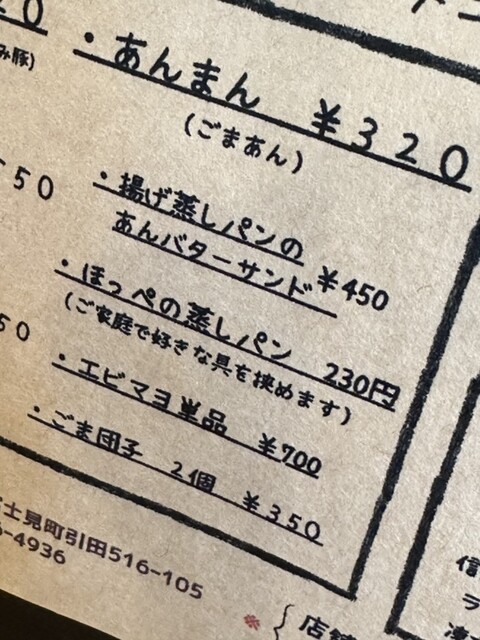 20
・あんまん ¥320
み豚)
(ごまあん)
50
・揚げ蒸しパンの
あんバターサンド ¥450
・ほっぺの蒸しパン 230円
(ご家庭で好きな具を挟めます)
50
・エビマヨ単品 ¥700
・ごま団子 2個 ¥350
士見町引田516-105
-4936
※ { 店
信
ラ